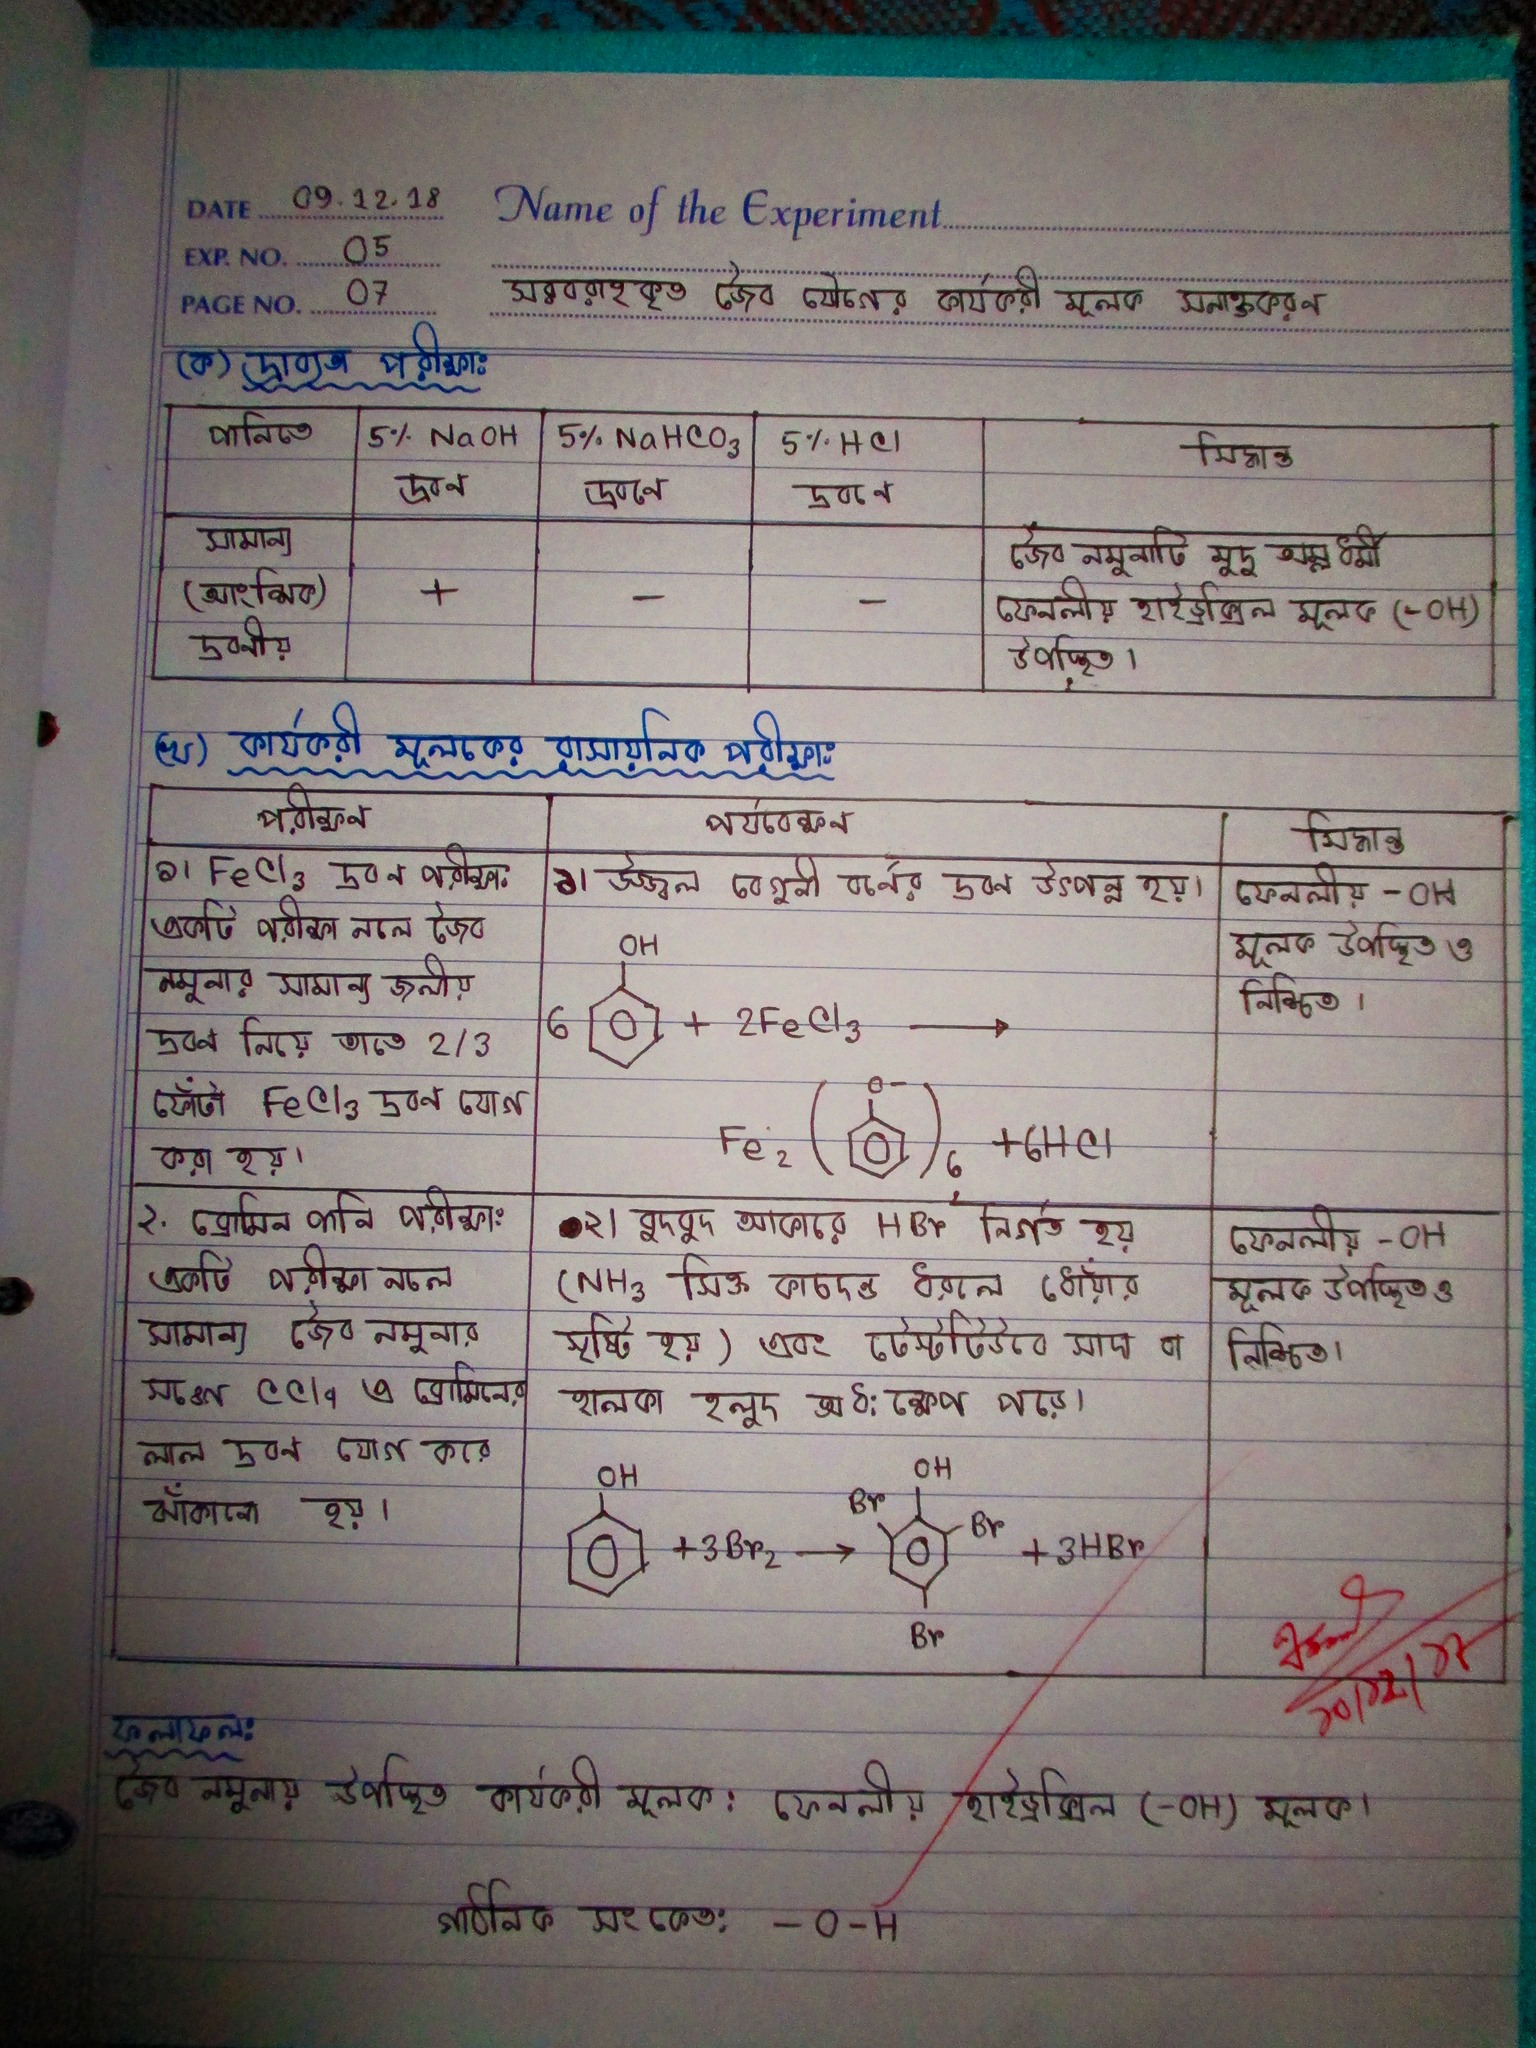 DATE 09.12.18 Name of the Experiment
EXP. NO. 05
PAGE NO. 07 সরবরাহকৃত জৈব যৌগের কার্যকরী মূলক সনাক্তকরন
(ক) দ্রাব্যতা পরীক্ষাঃ
পানিতে 5% NaOH 5% NaHCO3 5% HCl সিদ্ধান্ত
দ্রবন দ্রবনে দ্রবনে
সামান্য জৈব নমুনাটি মৃদু অম্লধর্মী
(আংশিক) + − − ফেনলীয় হাইড্রক্সিল মূলক (-OH)
দ্রবনীয় উপস্থিত।
(খ) কার্যকরী মূলকের রাসায়নিক পরীক্ষাঃ
পরীক্ষন পর্যবেক্ষন সিদ্ধান্ত
১। FeCl3 দ্রবন পরীক্ষাঃ
একটি পরীক্ষা নলে জৈব
নমুনার সামান্য জলীয়
দ্রবন নিয়ে তাতে 2/3
ফোঁটা FeCl3 দ্রবন যোগ
করা হয়।
১। উজ্জ্বল বেগুনী বর্নের দ্রবন উৎপন্ন হয়।
OH
6 + 2FeCl3 ⟶
O-
Fe2 ( )6 +6HCl
ফেনলীয় -OH
মূলক উপস্থিত ও
নিশ্চিত।
২. ব্রোমিন পানি পরীক্ষাঃ
একটি পরীক্ষা নলে
সামান্য জৈব নমুনার
সঙ্গে CCl4 এ ব্রোমিনের
লাল দ্রবন যোগ করে
ঝাঁকানো হয়।
২। বুদবুদ আকারে HBr নির্গত হয়
(NH3 সিক্ত কাচদন্ড ধরলে ধোঁয়ার
সৃষ্টি হয়) এবং টেস্টটিউবে সাদা বা
হালকা হলুদ অধঃক্ষেপ পড়ে।
OH OH
Br Br
+3Br2 ⟶ +3HBr
Br
ফেনলীয় -OH
মূলক উপস্থিত ও
নিশ্চিত।
ফলাফলঃ
জৈব নমুনায় উপস্থিত কার্যকরী মূলক: ফেনলীয় হাইড্রক্সিল (-OH) মূলক।
গাঠনিক সংকেত: -O-H